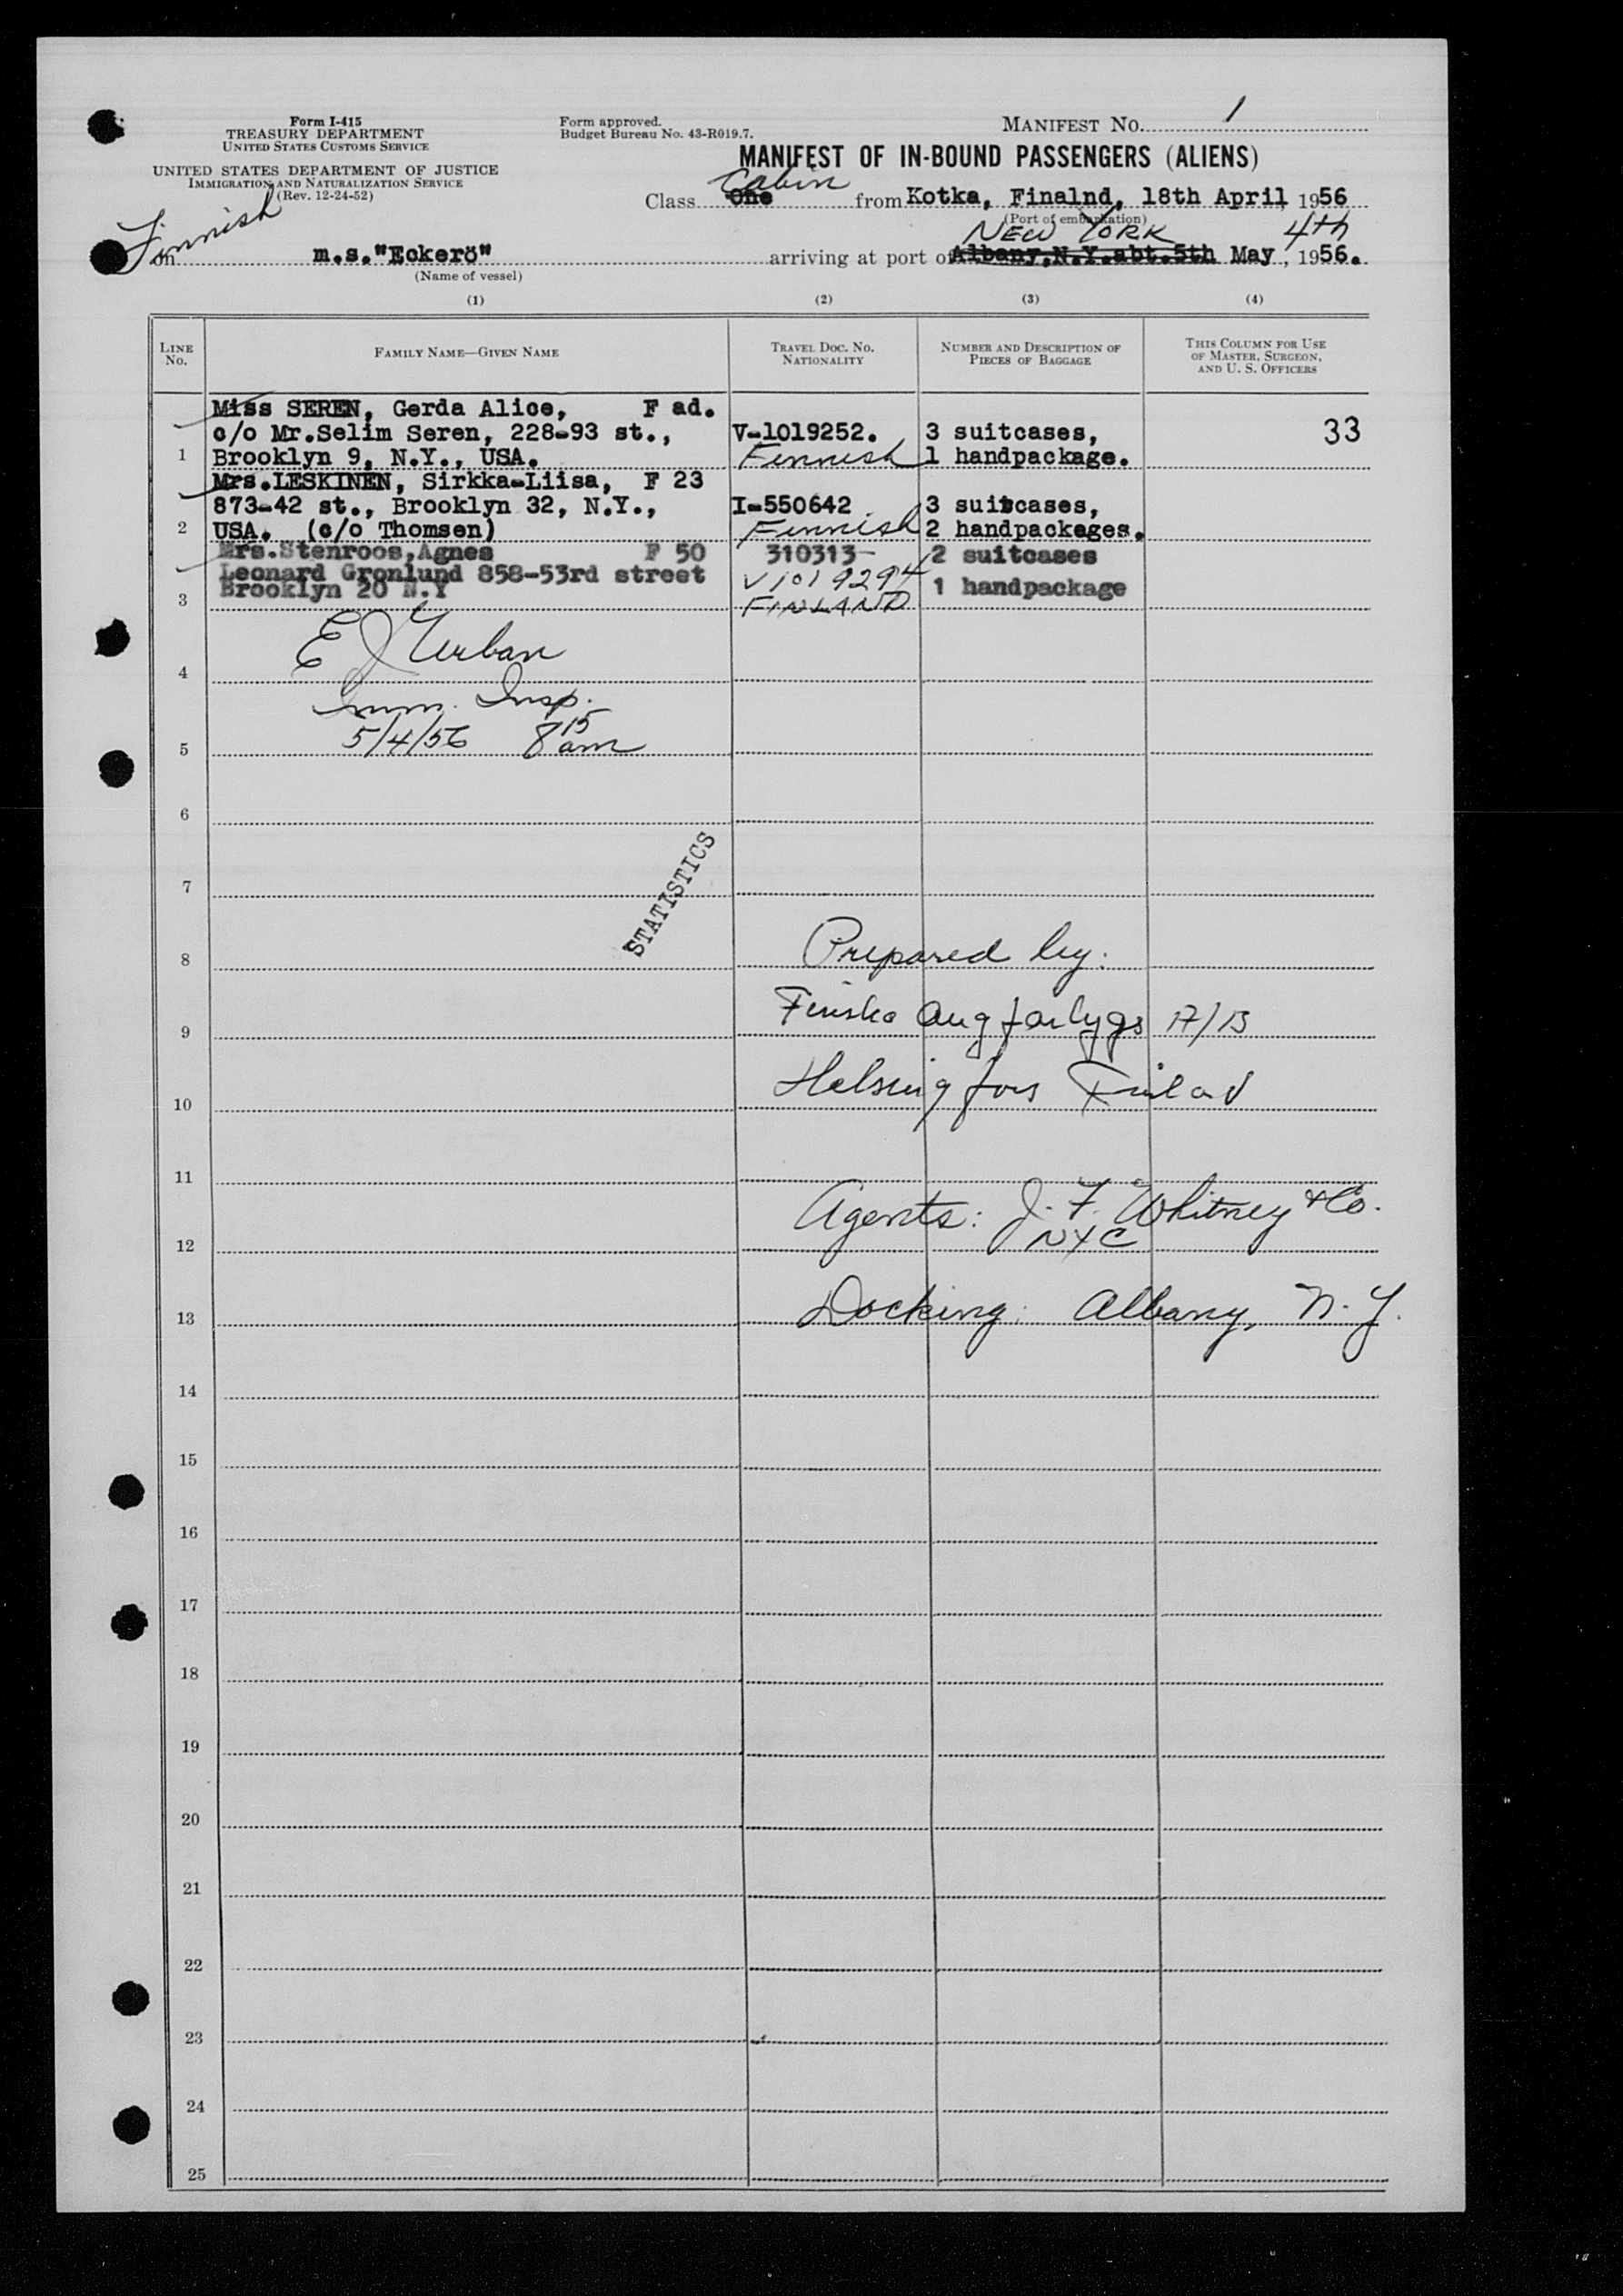 Form I-415
TREASURY DEPARTMENT
UNITED STATES CUSTOMS SERVICE
UNITED STATES DEPARTMENT OF JUSTICE
IMMIGRATION AND NATURALIZATION SERVICE
(Rev. 12-24-52)
Form approved.
Budget Bureau No. 43-R019.7.
MANIFEST No. 1
MANIFEST OF IN-BOUND PASSENGERS (ALIENS)
Cabin
Class One from Kotka, Finalnd, 18th April, 1956
(Port of embarkation)
Finnish
NEW YORK 4th
on m.s."Eckerö" arriving at port of Albany,N.Y.abt.5th May, 1956.
(Name of vessel)
(1) (2) (3) (4)
LINE No.
FAMILY NAME—GIVEN NAME
TRAVEL DOC. NO. NATIONALITY
NUMBER AND DESCRIPTION OF PIECES OF BAGGAGE
THIS COLUMN FOR USE OF MASTER, SURGEON, AND U. S. OFFICERS
Miss SEREN, Gerda Alice, F ad.
c/o Mr.Selim Seren, 228-93 st., V-1019252. 3 suitcases, 33
1 Brooklyn 9, N.Y., USA. Finnish 1 handpackage.
Mrs.LESKINEN, Sirkka-Liisa, F 23
873-42 st., Brooklyn 32, N.Y., I-550642 3 suitcases,
2 USA. (c/o Thomsen) Finnish 2 handpackages.
Mrs.Stenroos,Agnes F 50 310313- 2 suitcases
Leonard Gronlund 858-53rd street V1019294 1 handpackage
3 Brooklyn 20 N.Y FINLAND
E J Urban
4
Imm. Insp.
5 5/4/56 8 15 am
6
7
STATISTICS
8 Prepared by:
9 Finska Angfartygs A/B
10 Helsingfors
11
Agents: J. F. Whitney & Co.
12 NYC
13 Docking: Albany, N.Y.
14
15
16
17
18
19
20
21
22
23
24
25